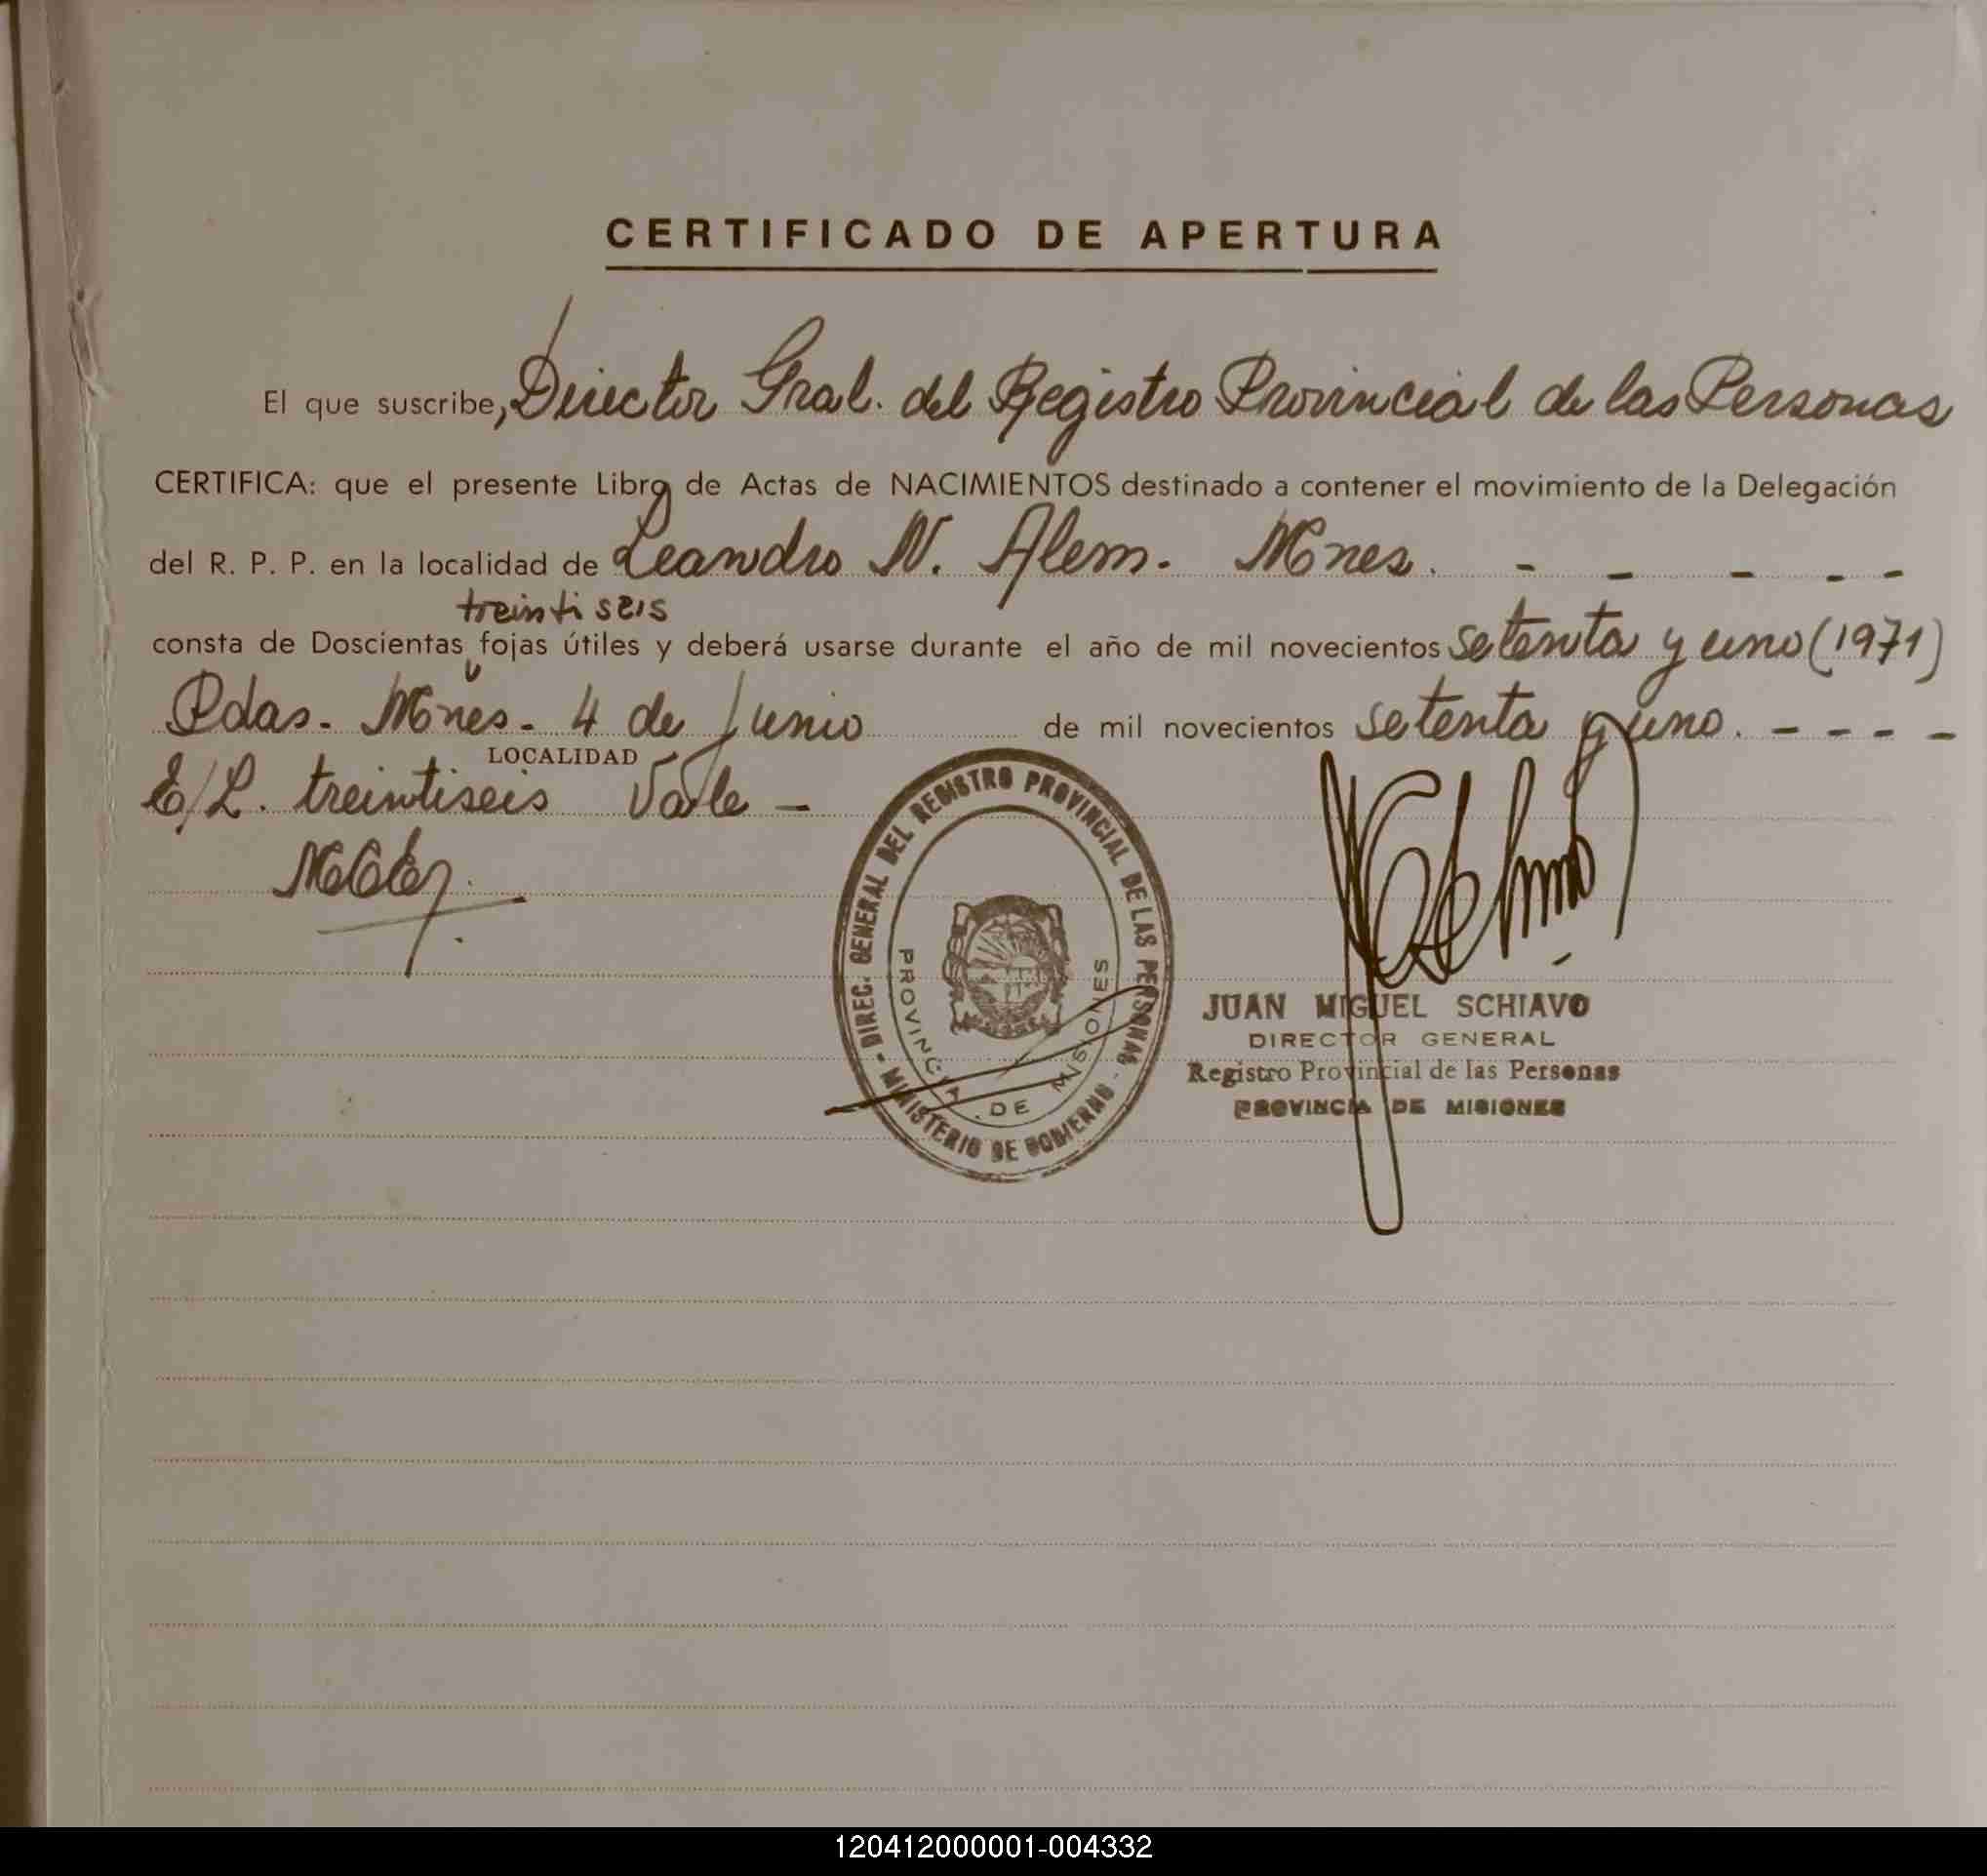 CERTIFICADO DE APERTURA
El que suscribe, Director Gral. del Registro Provincial de las Personas
CERTIFICA: que el presente Libro de Actas de NACIMIENTOS destinado a contener el movimiento de la Delegación
del R. P. P. en la localidad de Leandro N. Alem. Mnes. - - - - -
treintiseis
consta de Doscientas fojas útiles y deberá usarse durante el año de mil novecientos setenta y uno (1971)
Pdas. Mnes. 4 de Junio de mil novecientos setenta y uno. - - - -
LOCALIDAD
E/L. treintiseis Vale -
DIREC. GENERAL DEL REGISTRO PROVINCIAL DE LAS PERSONAS - MINISTERIO DE GOBIERNO -
PROVINCIA DE MISIONES
JUAN MIGUEL SCHIAVO
DIRECTOR GENERAL
Registro Provincial de las Personas
PROVINCIA DE MISIONES
120412000001-004332